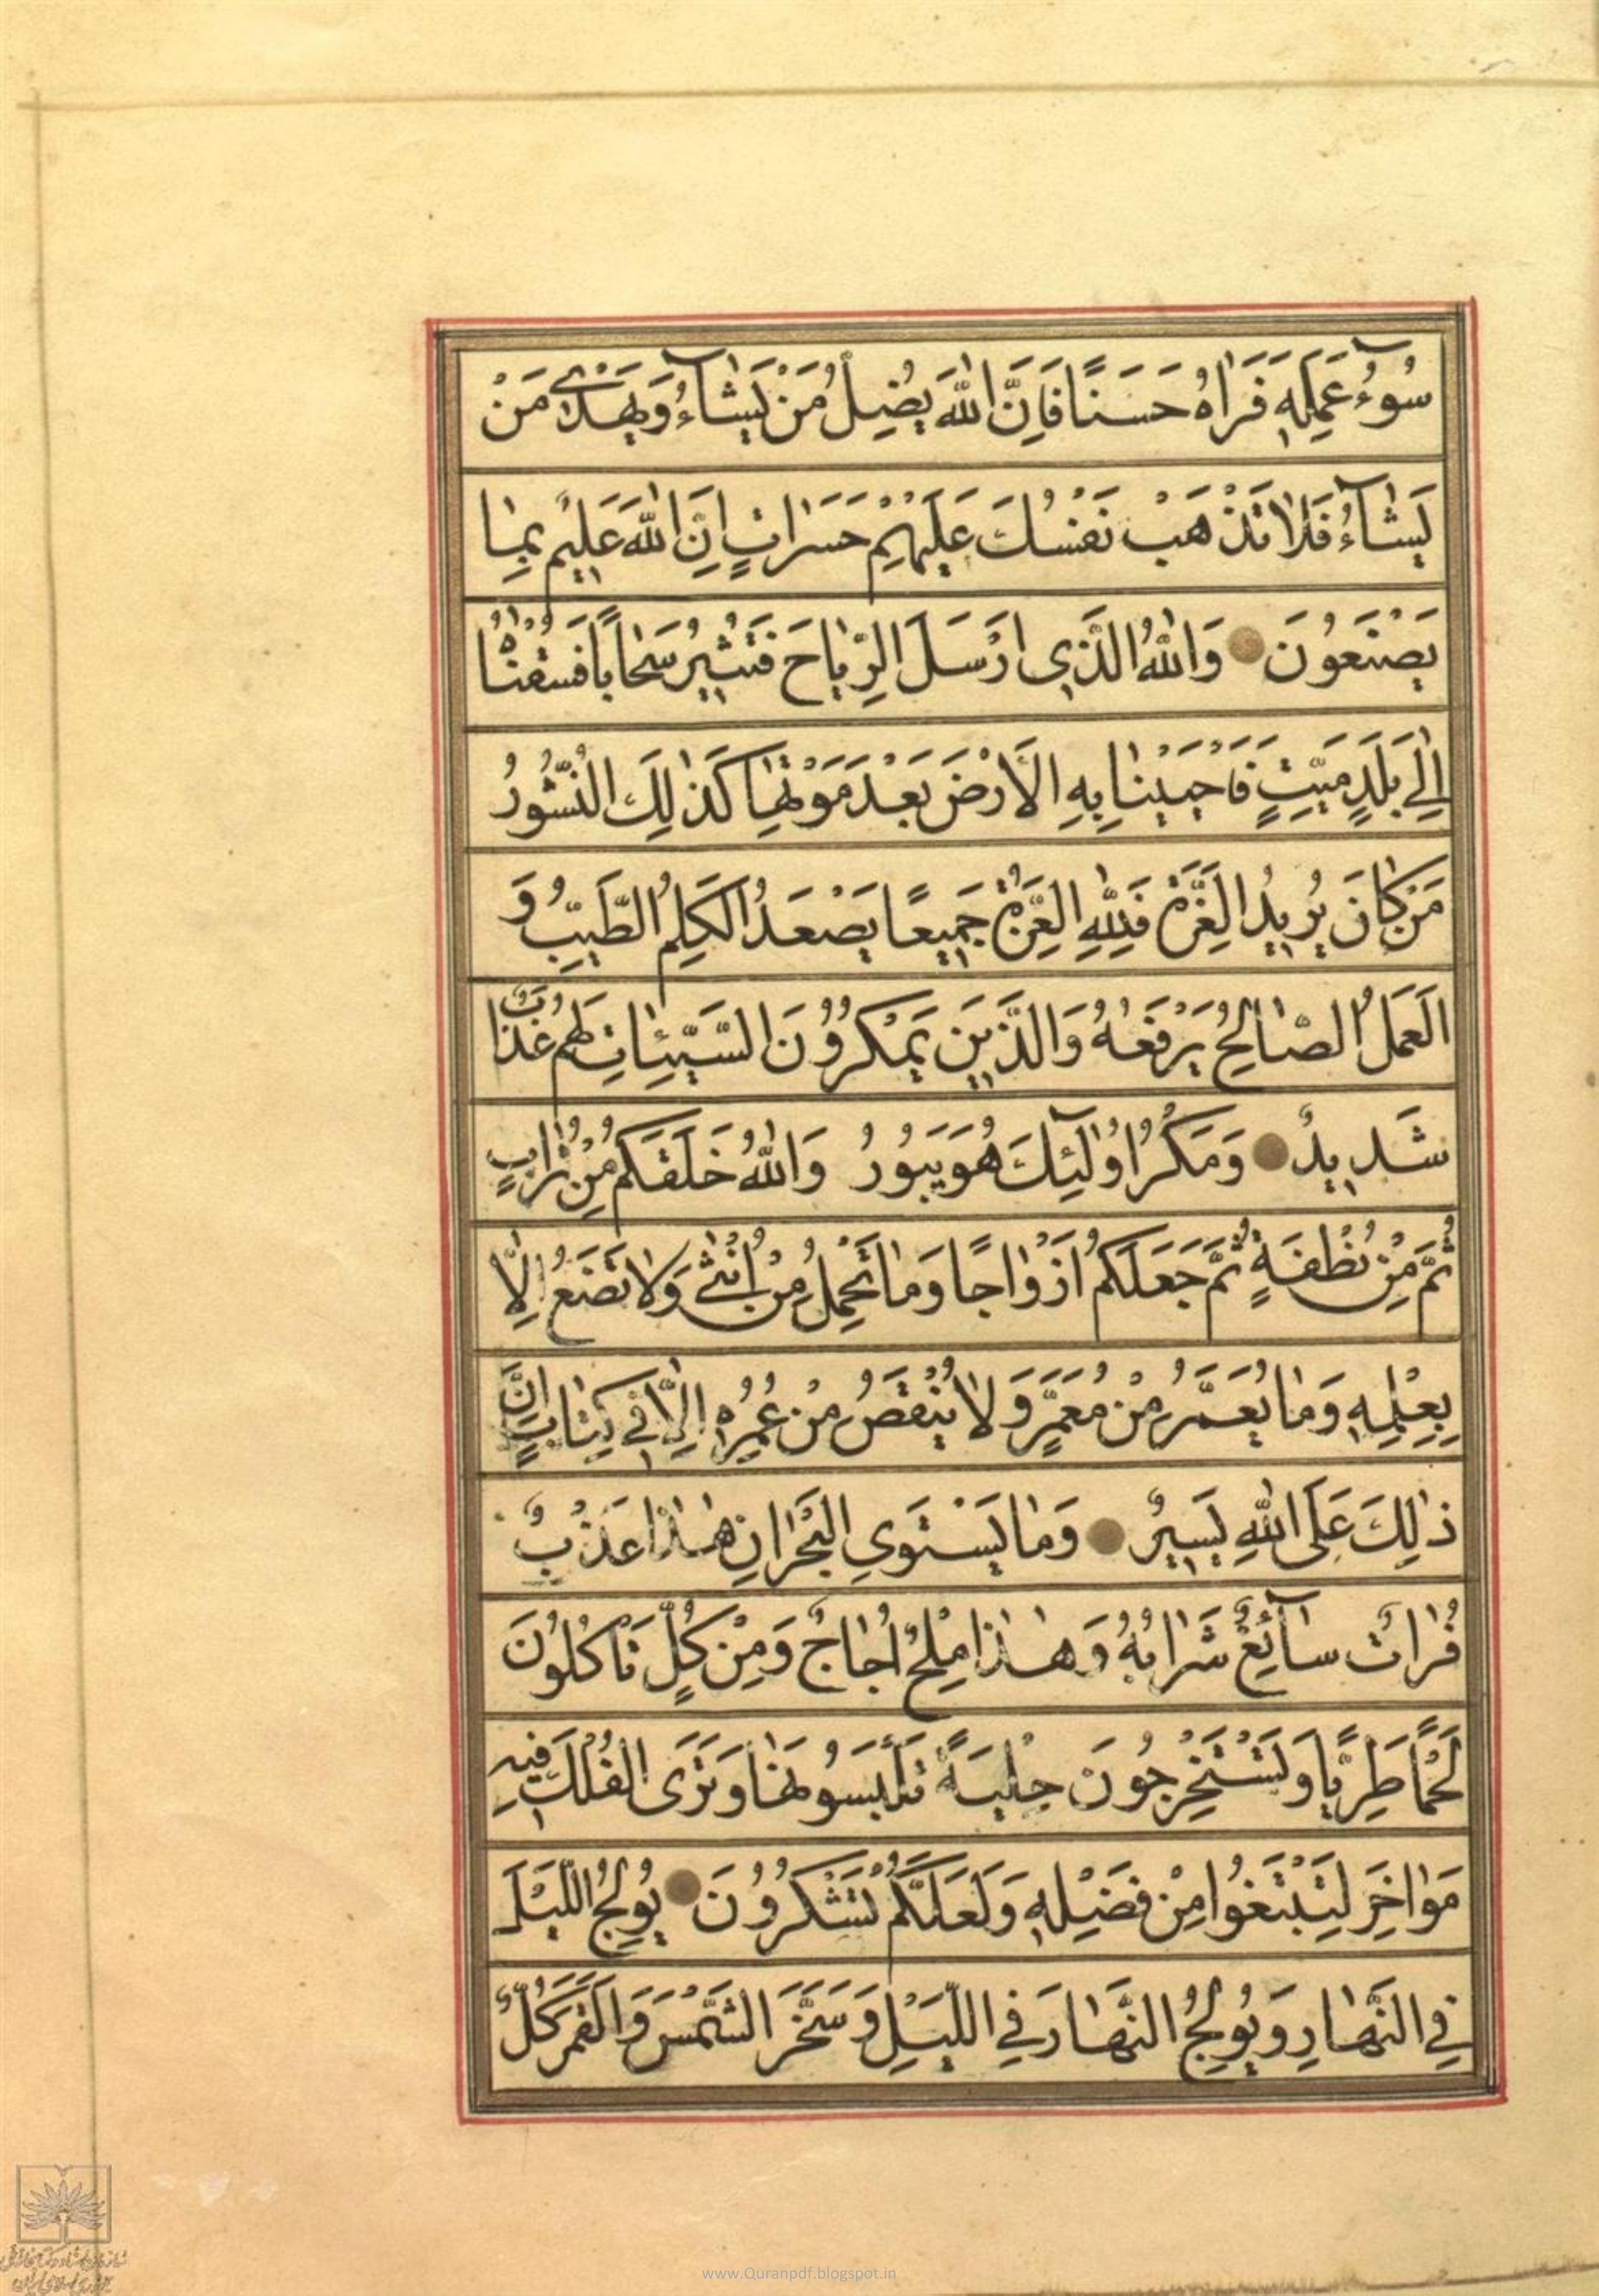 سُوءُ عَمَلِهِ فَرَاٰهُ حَسَنًا فَاِنَّ اللّٰهَ يُضِلُّ مَنْ يَشَآءُ وَيَهْدِي مَنْ
يَشَآءُ فَلَا تَذْهَبْ نَفْسُكَ عَلَيْهِمْ حَسَرَاتٍ اِنَّ اللّٰهَ عَلِيمٌ بِمَا
يَصْنَعُونَ وَاللّٰهُ الَّذِي اَرْسَلَ الرِّيَاحَ فَتُثِيرُ سَحَابًا فَسُقْنَاهُ
اِلٰى بَلَدٍ مَيِّتٍ فَاَحْيَيْنَا بِهِ الْاَرْضَ بَعْدَ مَوْتِهَا كَذٰلِكَ النُّشُورُ
مَنْ كَانَ يُرِيدُ الْعِزَّةَ فَلِلّٰهِ الْعِزَّةُ جَمِيعًا يَصْعَدُ الْكَلِمُ الطَّيِّبُ وَ
الْعَمَلُ الصَّالِحُ يَرْفَعُهُ وَالَّذِينَ يَمْكُرُونَ السَّيِّئَاتِ لَهُمْ عَذَابٌ
شَدِيدٌ وَمَكْرُ اُولٰٓئِكَ هُوَ يَبُورُ وَاللّٰهُ خَلَقَكُمْ مِنْ تُرَابٍ
ثُمَّ مِنْ نُطْفَةٍ ثُمَّ جَعَلَكُمْ اَزْوَاجًا وَمَا تَحْمِلُ مِنْ اُنْثٰى وَلَا تَضَعُ اِلَّا
بِعِلْمِهِ وَمَا يُعَمَّرُ مِنْ مُعَمَّرٍ وَلَا يُنْقَصُ مِنْ عُمُرِهِ اِلَّا فِي كِتَابٍ اِنَّ
ذٰلِكَ عَلَى اللّٰهِ يَسِيرٌ وَمَا يَسْتَوِي الْبَحْرَانِ هٰذَا عَذْبٌ
فُرَاتٌ سَآئِغٌ شَرَابُهُ وَهٰذَا مِلْحٌ اُجَاجٌ وَمِنْ كُلٍّ تَاْكُلُونَ
لَحْمًا طَرِيًّا وَتَسْتَخْرِجُونَ حِلْيَةً تَلْبَسُونَهَا وَتَرَى الْفُلْكَ فِيهِ
مَوَاخِرَ لِتَبْتَغُوا مِنْ فَضْلِهِ وَلَعَلَّكُمْ تَشْكُرُونَ يُولِجُ اللَّيْلَ
فِي النَّهَارِ وَيُولِجُ النَّهَارَ فِي اللَّيْلِ وَسَخَّرَ الشَّمْسَ وَالْقَمَرَ كُلٌّ
www.Quranpdf.blogspot.in